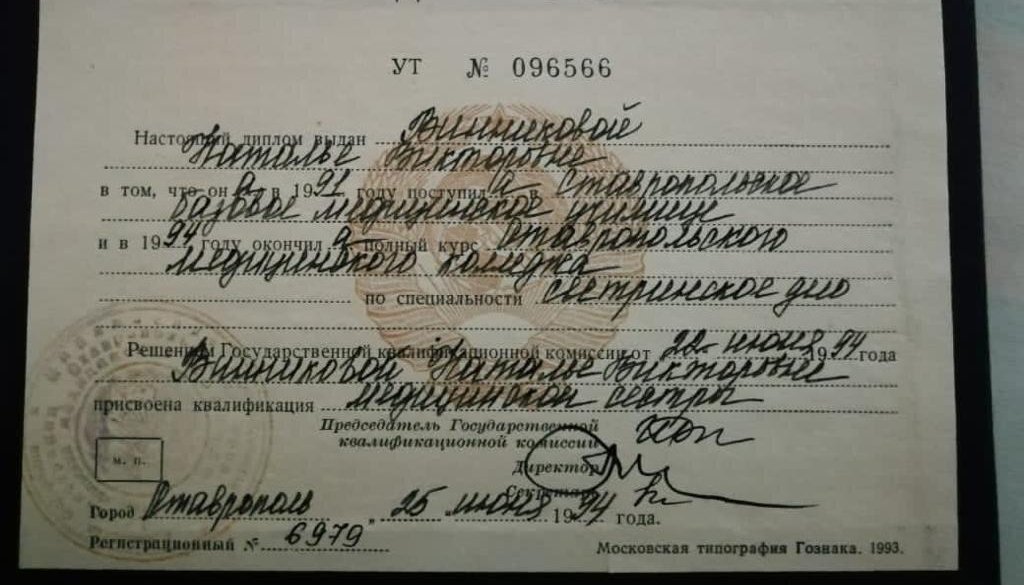 УТ № 096566
Настоящий диплом выдан Винниковой
Наталье Викторовне
в том, что он а в 1991 году поступил а в Ставропольское
базовое медицинское училище
и в 1994 году окончил а полный курс Ставропольского
медицинского колледжа
по специальности сестринское дело
Решением Государственной квалификационной комиссии от 22 июня 1994 года
Винниковой Наталье Викторовне
присвоена квалификация медицинской сестры
Председатель Государственной
квалификационной комиссии
Директор
Секретарь
м. п.
Город Ставрополь „ 25 июня 1994 года.
Регистрационный № 6979
Московская типография Гознака. 1993.